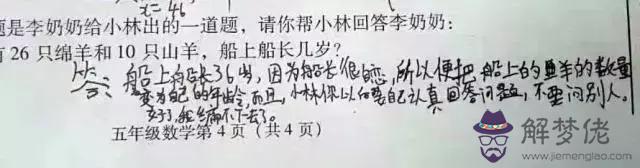 x=46
题是李奶奶给小林出的一道题，请你帮小林回答李奶奶：
有26只绵羊和10只山羊，船上船长几岁？
答：船上船长36岁，因为船长很恋，所以便把船上的羊的数量
变为自己的年龄，而且，小林你以后要自己认真回答问题，不要问别人。
编不下去了。
五年级数学第4页（共4页）
解梦佬
www.jiemenglao.com